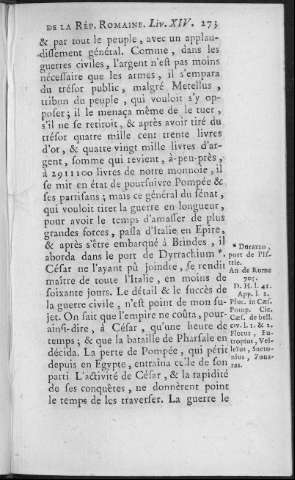 DE LA RÉP. ROMAINE. Liv. XIV. 273
& par tout le peuple, avec un applau-
dissement général. Comme, dans les
guerres civiles, l'argent n'est pas moins
nécessaire que les armes, il s'empara
du trésor public, malgré Metellus,
tribun du peuple, qui vouloit s'y op-
poser; il le menaça même de le tuer,
s'il ne se retiroit, & après avoir tiré du
trésor quatre mille cent trente livres
d'or, & quatre vingt mille livres d'ar-
gent, somme qui revient, à-peu-près,
à 2911100 livres de notre monnoie, il
se mit en état de poursuivre Pompée &
ses partisans; mais ce général du sénat,
qui vouloit tirer la guerre en longueur,
pour avoir le temps d'amasser de plus
grandes forces, passa d'Italie en Epire,
& après s'être embarqué à Brindes, il
aborda dans le port de Dyrrachium *.
César ne l'ayant pû joindre, se rendit
maître de toute l'Italie, en moins de
soixante jours. Le détail & le succès de
la guerre civile, n'est point de mon su-
jet. On sait que l'empire ne coûta, pour
ainsi-dire, à César, qu'une heure de
temps; & que la bataille de Pharsale en
décida. La perte de Pompée, qui périt
depuis en Egypte, entraîna celle de son
parti. L'activité de César, & la rapidité
de ses conquêtes, ne donnèrent point
le temps de les traverser. La guerre le
* Durazzo,
port de l'Is-
trie.
An de Rome
705.
D. H. l. 41.
App. l. 2.
Plut. in Cæs.
Pomp. Cic.
Cæs. de bell.
civ. L. 1. & 2.
Florus, Eu-
tropius, Vel-
leïus, Sueto-
nius, Zona-
ras.